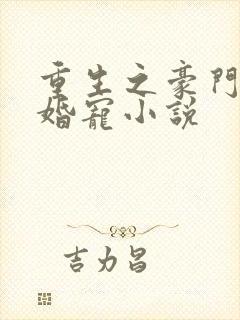 重生之豪門
婚寵小說
吉力昌